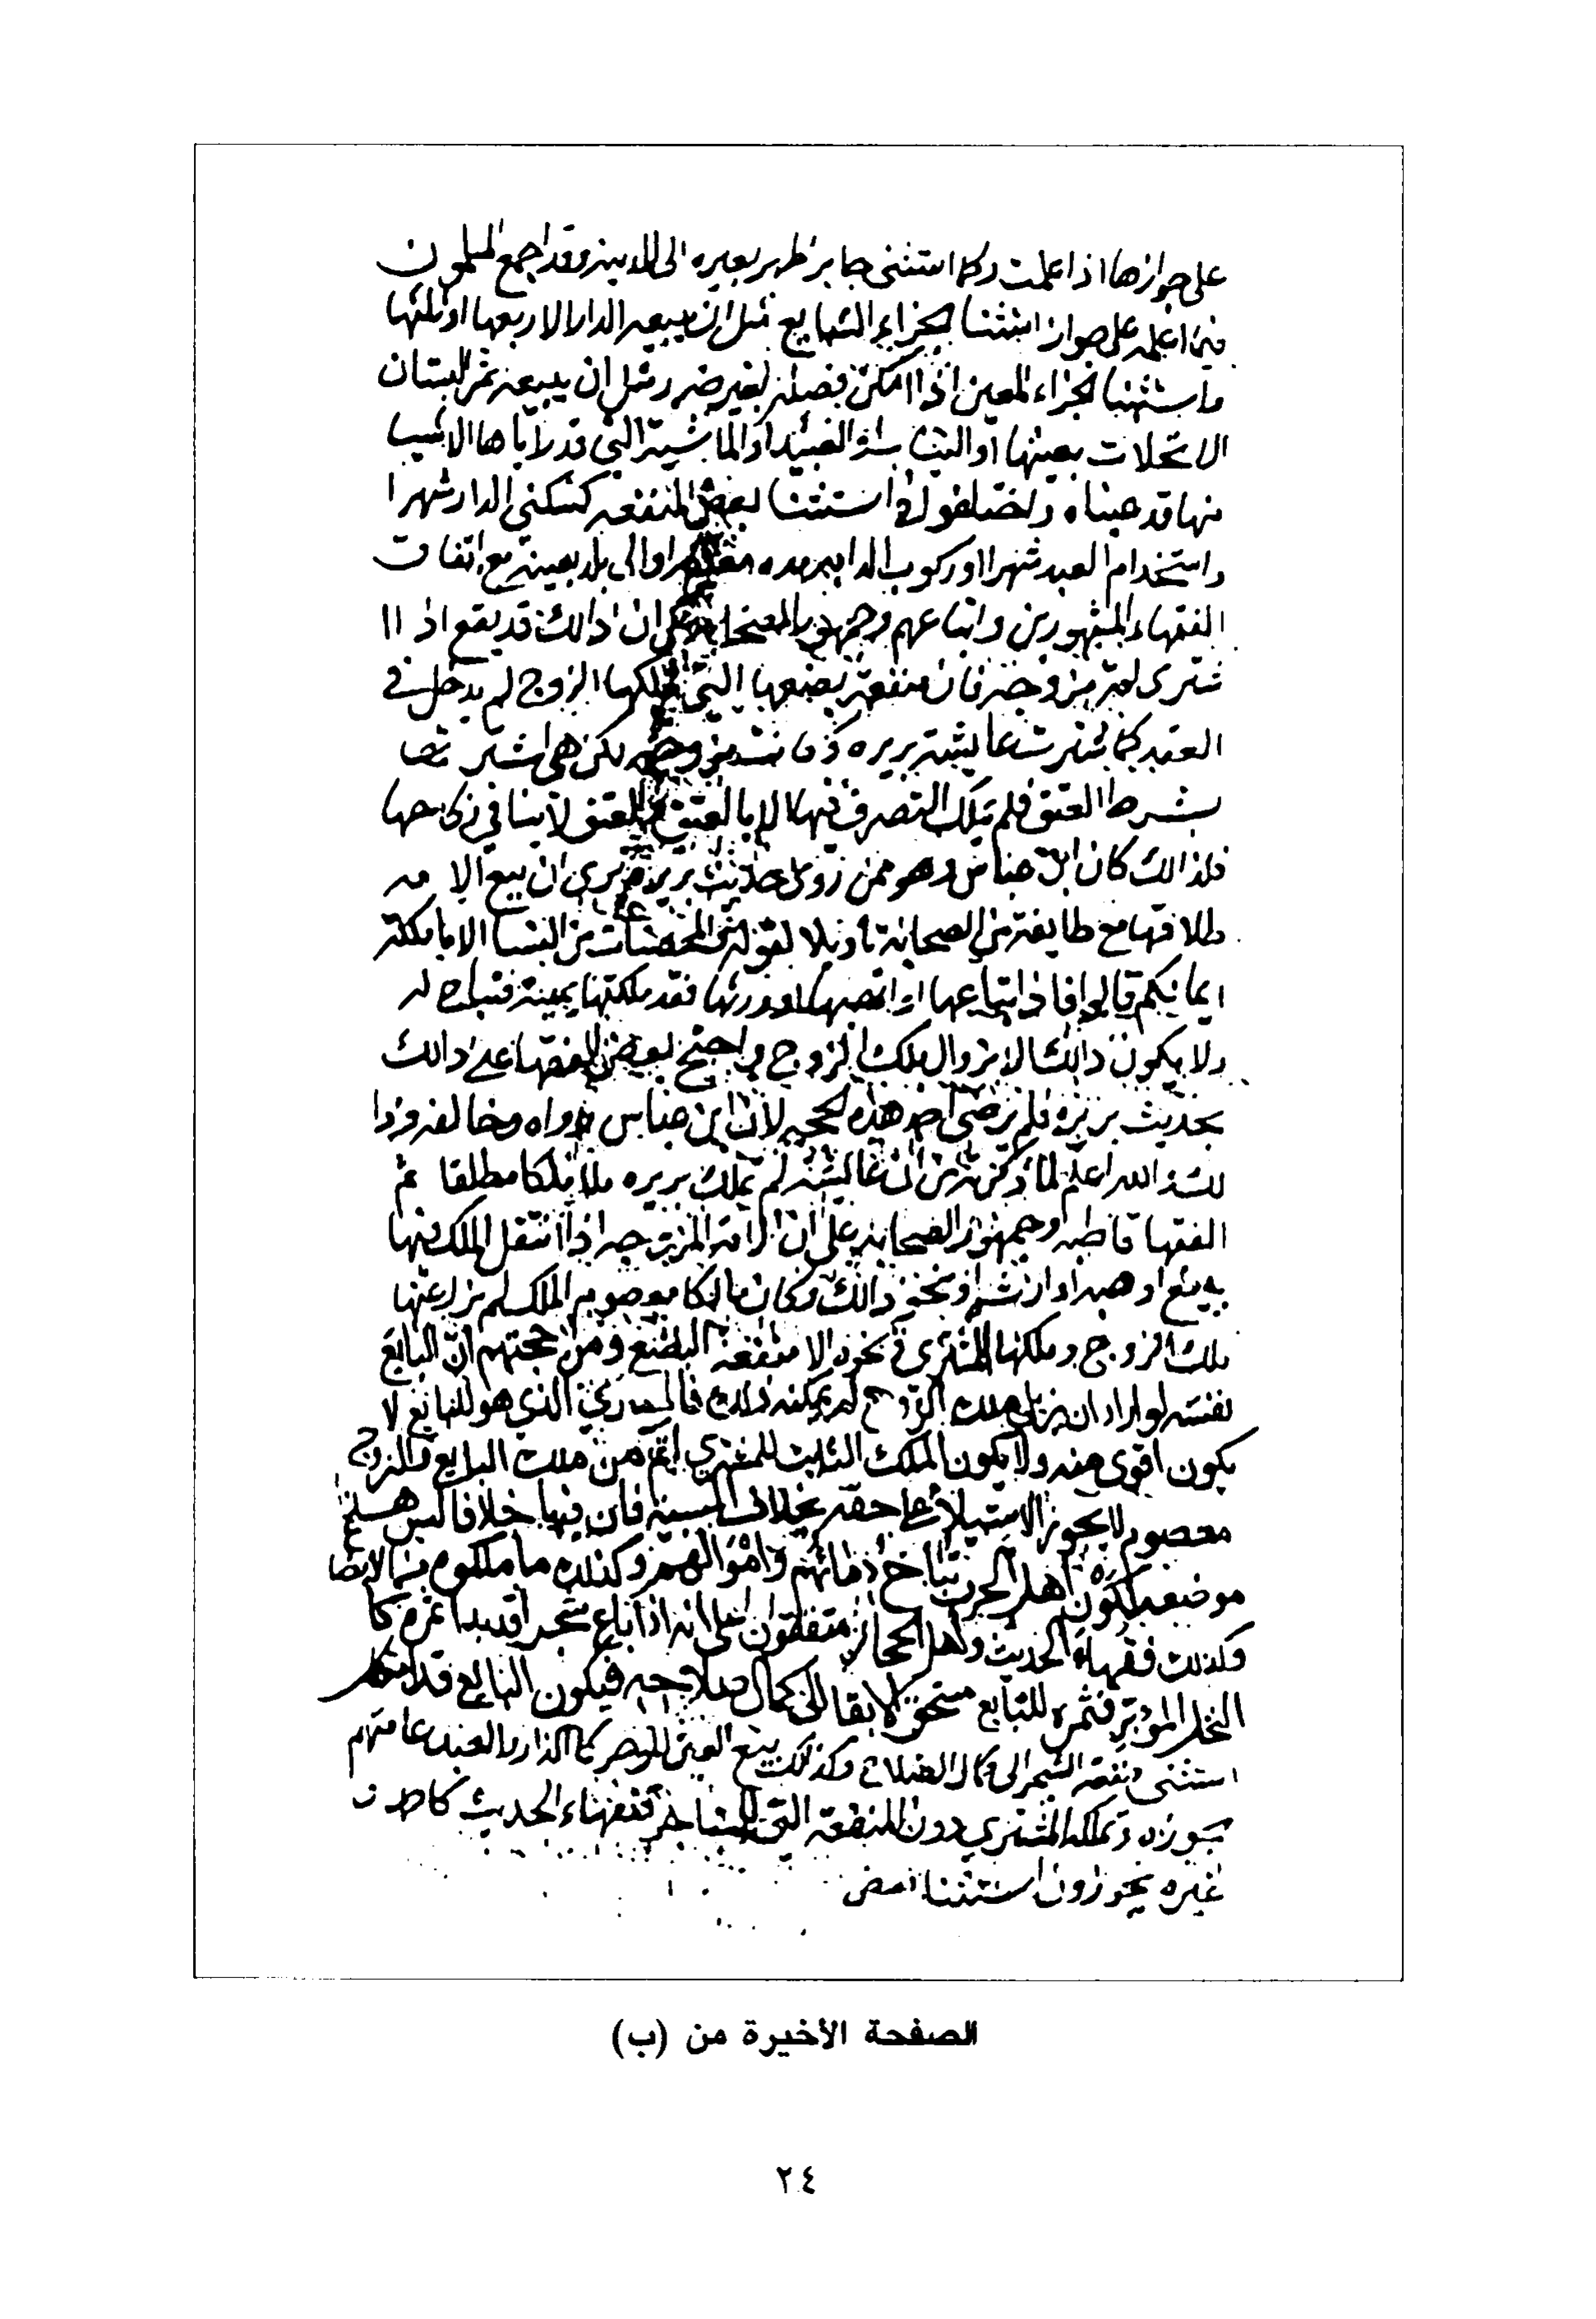 على جوازها اذا علمت وكما استثنى جابر ظهر بعيره الى المدينة وقد اجمع المسلمون
فيما اعلمه على جواز استثنا الجزاء الشايع مثل ان يبيعه الدار الا ربعها او ثلثها
واستثنا الجزاء المعين اذا امكن فصله بغير ضرر مثل ان يبيعه ثمر البستان
الا نخلات بعينها او الثياب او العبيد او الماشية التي قد راياها الا شيا
منها قد عيناه واختلفوا في استثنا بعض المنفعه كسكنى الدار شهرا
واستخدام العبد شهرا او ركوب الدابه مده او الى بلد بعينه مع اتفاق
الفقهاء المشهورين واتباعهم وجمهور الصحابة على ان ذالك قد يقع اذا ا
شترى امة مزوجة فان منفعة بضعها التي يملكها الزوج لم يدخل في
العقد كما اشترت عايشة بريره وكانت مزوجه لكن هي اشترتها
بشرط العتق فلم تملك التصرف فيها الا بالعتق والعتق لا ينافي نكاحها
فلذالك كان ابن عباس وهو ممن روى حديث بريرة يرى ان بيع الامه
طلاقها مع طايفة من الصحابة تاويلا لقوله والمحصنات من النسا الا ما ملكت
ايمانكم قالوا فاذا ابتاعها او اتهبها او ورثها فقد ملكتها يمينه فتباح له
ولا يكون ذالك الا بزوال ملك الزوج واحتج بعض الفقها على ذالك
بحديث بريرة فلم يرضى احمد هذه الحجه لان ابن عباس رواه وخالفه وذا
لك والله اعلم لما ذكرته من ان عايشة لم تملك بريره ملكا مطلقا ثم
الفقها قاطبه وجمهور الصحابة على ان الامة المزوجه اذا انتقل الملك فيها
ببيع او هبه او ارث او نحو ذالك وكان مالكا معصوم الملك لم يزل عنها
ملك الزوج وملكها المشتري ونحوه الا منفعة البضع ومن حجتهم ان البايع
نفسه لو اراد ان يزيل ملك الزوج لم يمكنه ذلك فالمشتري الذي هو للبايع لا
يكون اقوى منه ولا يكون الملك الثابت للمشتري اتم من ملك البايع والزوج
معصوم لا يجوز الاستيلا على حقه بخلاف المسبية فان فيها خلافا ليس هذا
موضعه لكون اهل الحرب تباح دمائهم واموالهم وكذلك ما ملكوه من الابضاع
وكذلك فقهاء الحديث واهل الحجاز متفقون على انه اذا باع شجرا قد بدا ثمره كا
النخل المؤبر فثمره للبايع مستحق الابقا الى كمال صلاحه فيكون البايع قد
استثنى منفعة الشجر الى كمال الصلاح وكذلك بيع العين المؤجره كالدار والعبد عامتهم
يجوزه ويملكه المشتري دون المنفعة التي للمستاجر ففقهاء الحديث كاحمد و
غيره يجوزون استثنا بعض
الصفحة الأخيرة من (ب)
٢٤